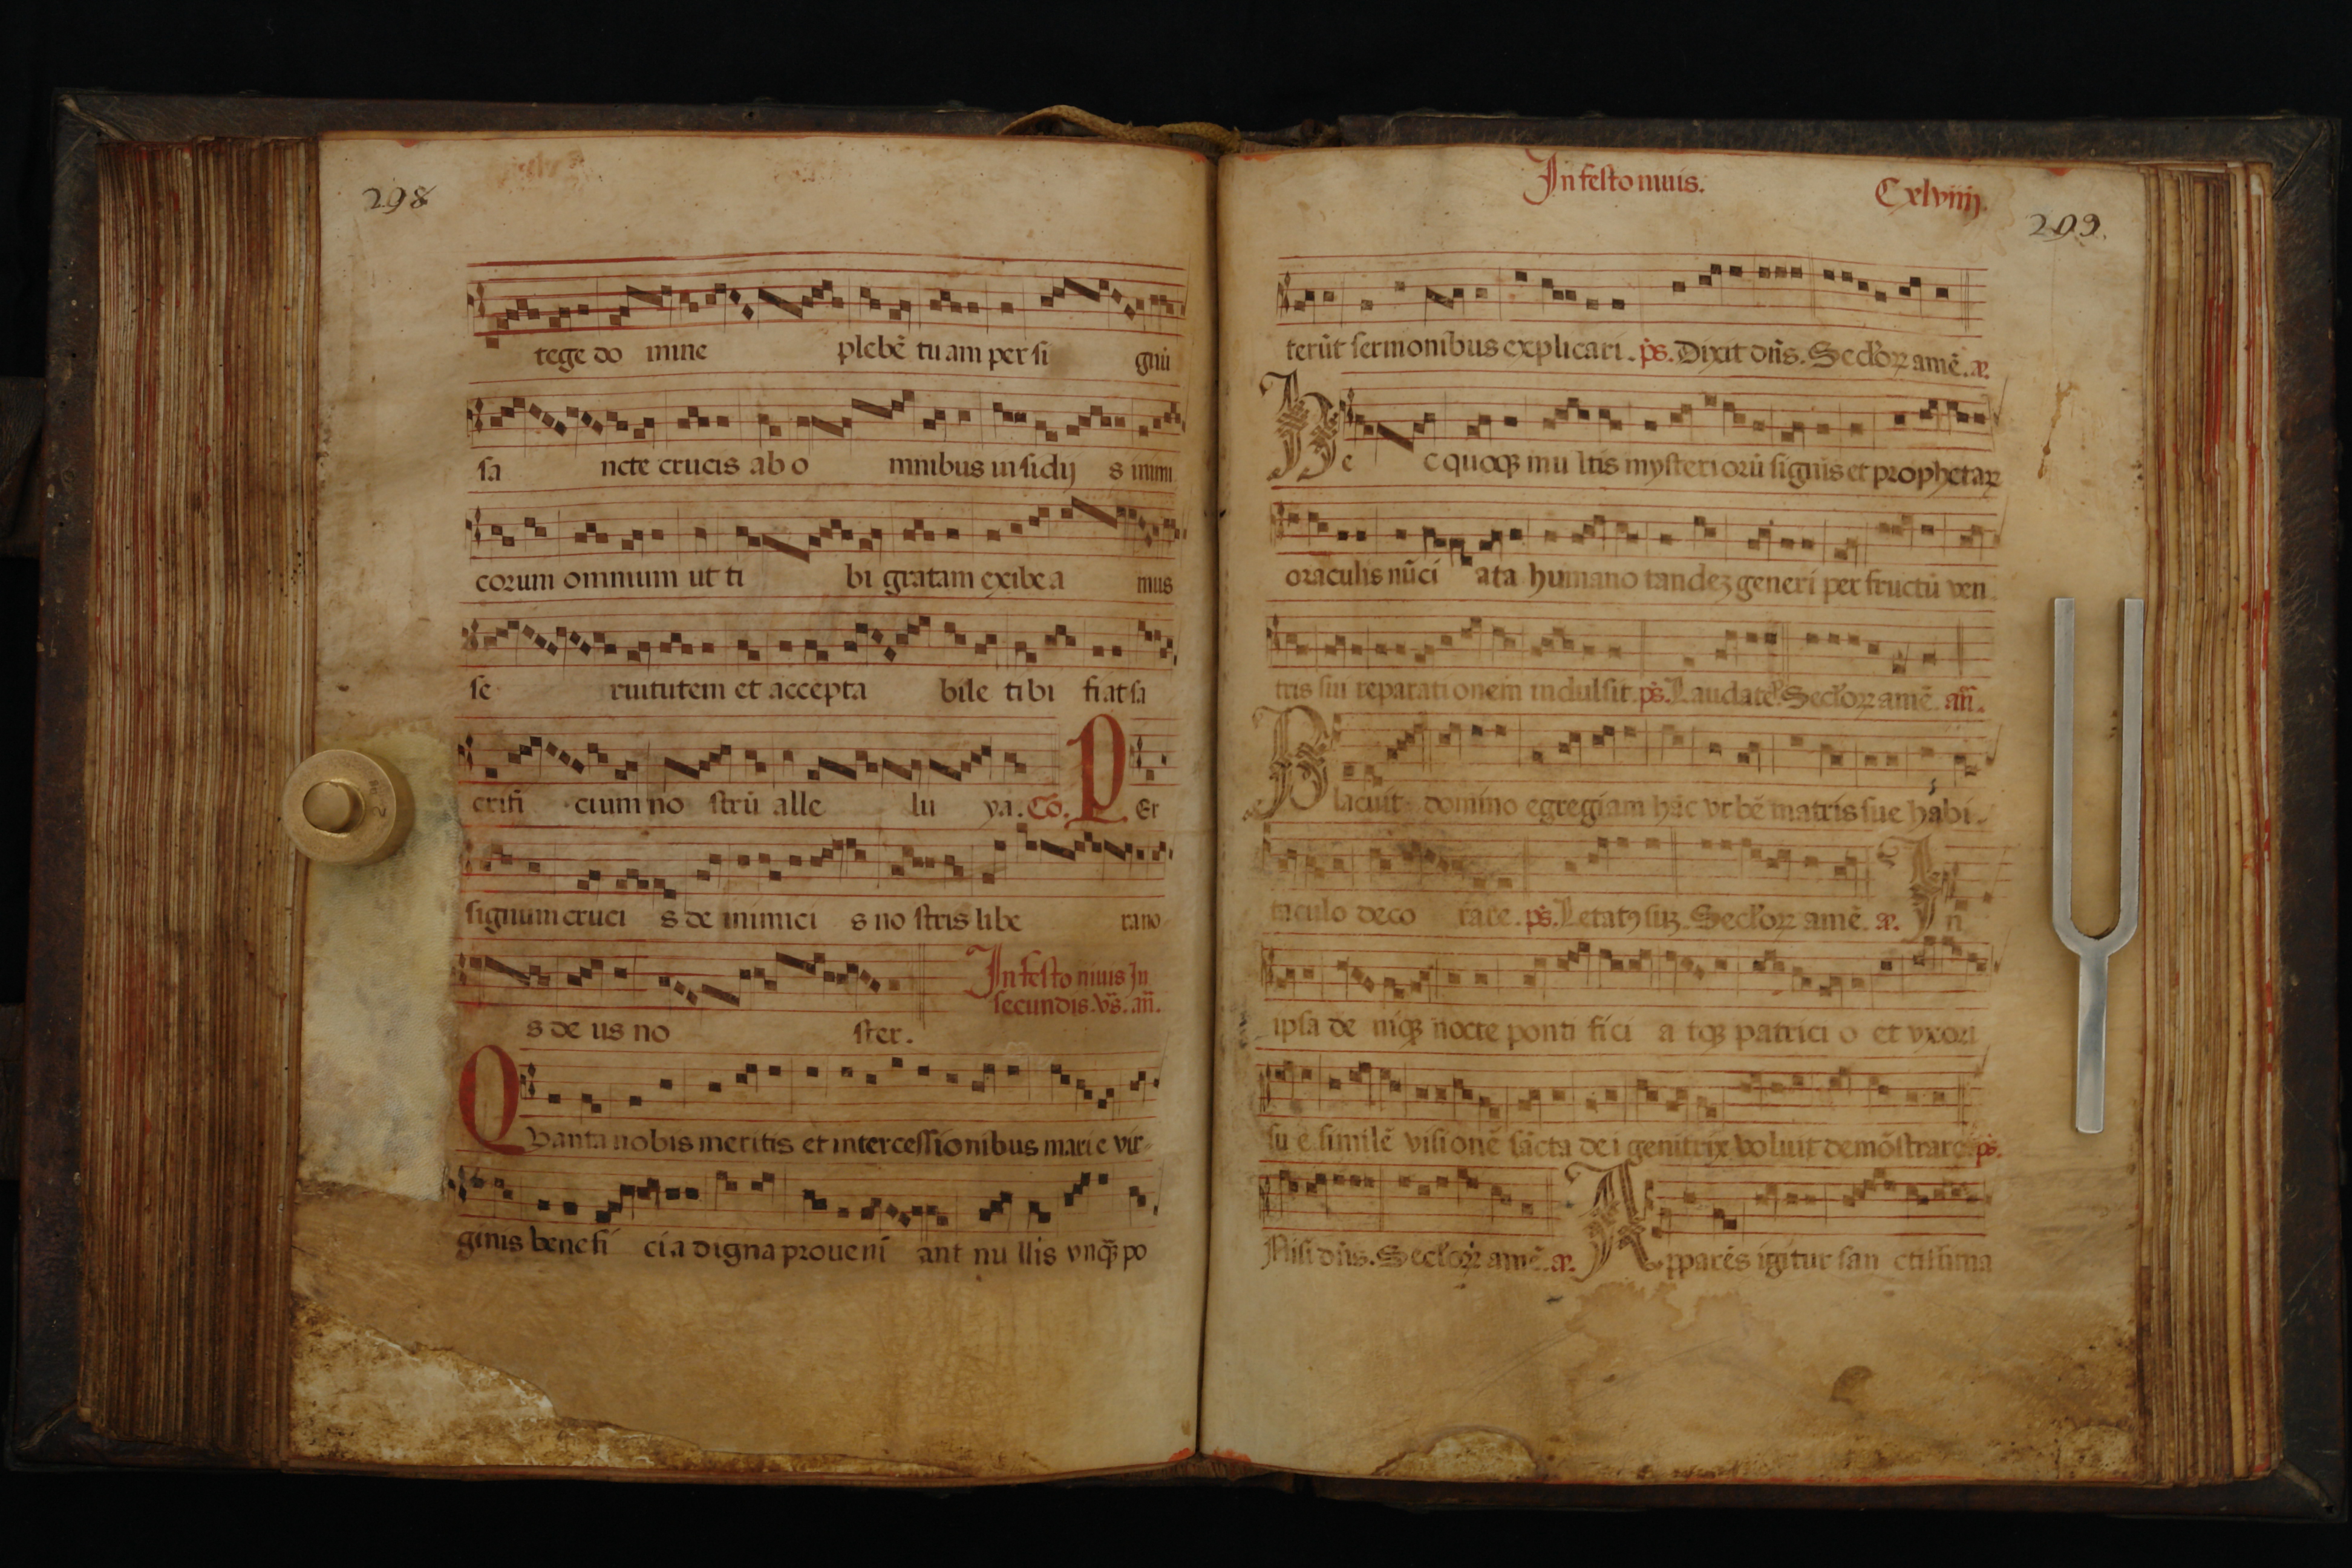 298
tege do mine plebē tu am per si gnū
sa ncte crucis ab o mnibus insidij s inimi
corum omnium ut ti bi gratam exibe a mus
se ruitutem et accepta bile tibi fiat sa
crifi cium no strū alle lu ya. Cō. P Er
signum cruci s de inimici s no stris libe ra no
s de us no ster.
In festo niuis In
secundis. vs̄. an̄.
Q Vanta nobis meritis et intercessionibus mari e vir-
ginis benefi ci a digna proueni ant nu llis vnqꝫ po
In festo niuis.
Cxlviiij.
299.
terūt sermonibus explicari. ps̄. Dixit dn̄s. Seclorꝝ amē. a.
H e c quoqꝫ mu ltis mysteriorū signis et prophetaꝝ
oraculis nūci ata humano tandeꝫ generi per fructū ven
tris sui reparati onem indulsit. ps̄. Laudate. Seclorꝝ amē. an̄.
P lacuit domino egregiam hāc vrbē matris sue habi-
taculo deco rare. ps̄. Letatꝰ suꝫ. Seclorꝝ amē. a. I n
ipsa de niqꝫ nocte ponti fici a tqꝫ patrici o et vxori
su e similē visionē sācta dei genitrix voluit demōstrare. ps̄.
Nisi dn̄s. Seclorꝝ amē. a. A pparēs igitur san ctissima